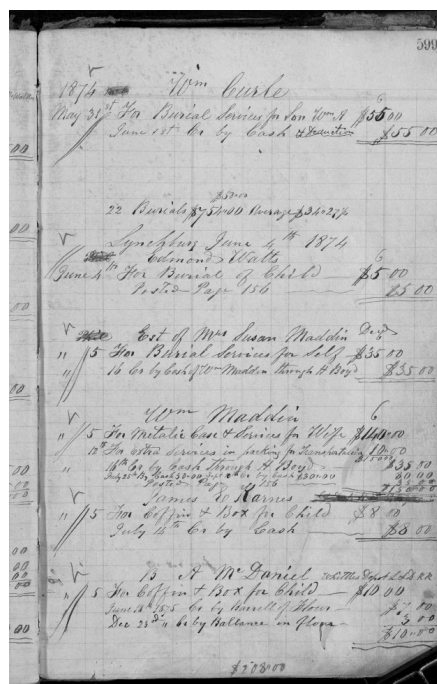 599
1874 Wm Curle
May 31st For Burial Services for Son Wm A $55.00
June 1st Cr by Cash & $55.00
$50.00
22 Burials $754.00 Average $34.27
Lynchburg June 4th 1874
Edmond Watts
June 4th For Burial of Child $5.00
Posted Page 156 $5.00
Est of Mrs Susan Maddin Decd
" 5 For Burial Services for Self $35.00
" 16 Cr by Cash of Wm Maddin through A Boyd $35.00
Wm Maddin
" 5 For Metalic Case & Services for Wife
For extra Services in packing for Transportation
16th Cr by Cash through A Boyd $35.00
Posted Page 156
James E Karnes
" 5 For Coffin & Box for Child $8.00
July 14th Cr by Cash $8.00
B A McDaniel
" 5 For Coffin & Box for Child $10.00
June 1875 Cr by Barrell of Flour $7.00
Dec 23d " Cr by Ballance in flour 3.00
$10.00
$208.00